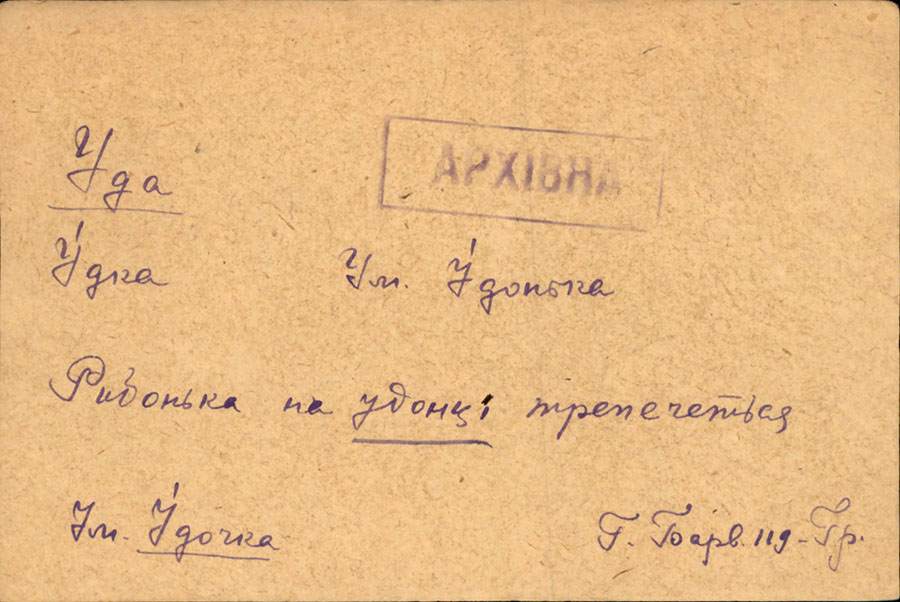 Уда
АРХІВНА
У́дка Ум. У́донька
Рибонька на удонці трепечеться
Ум. У́дочка Г. Барв. 119-Гр.